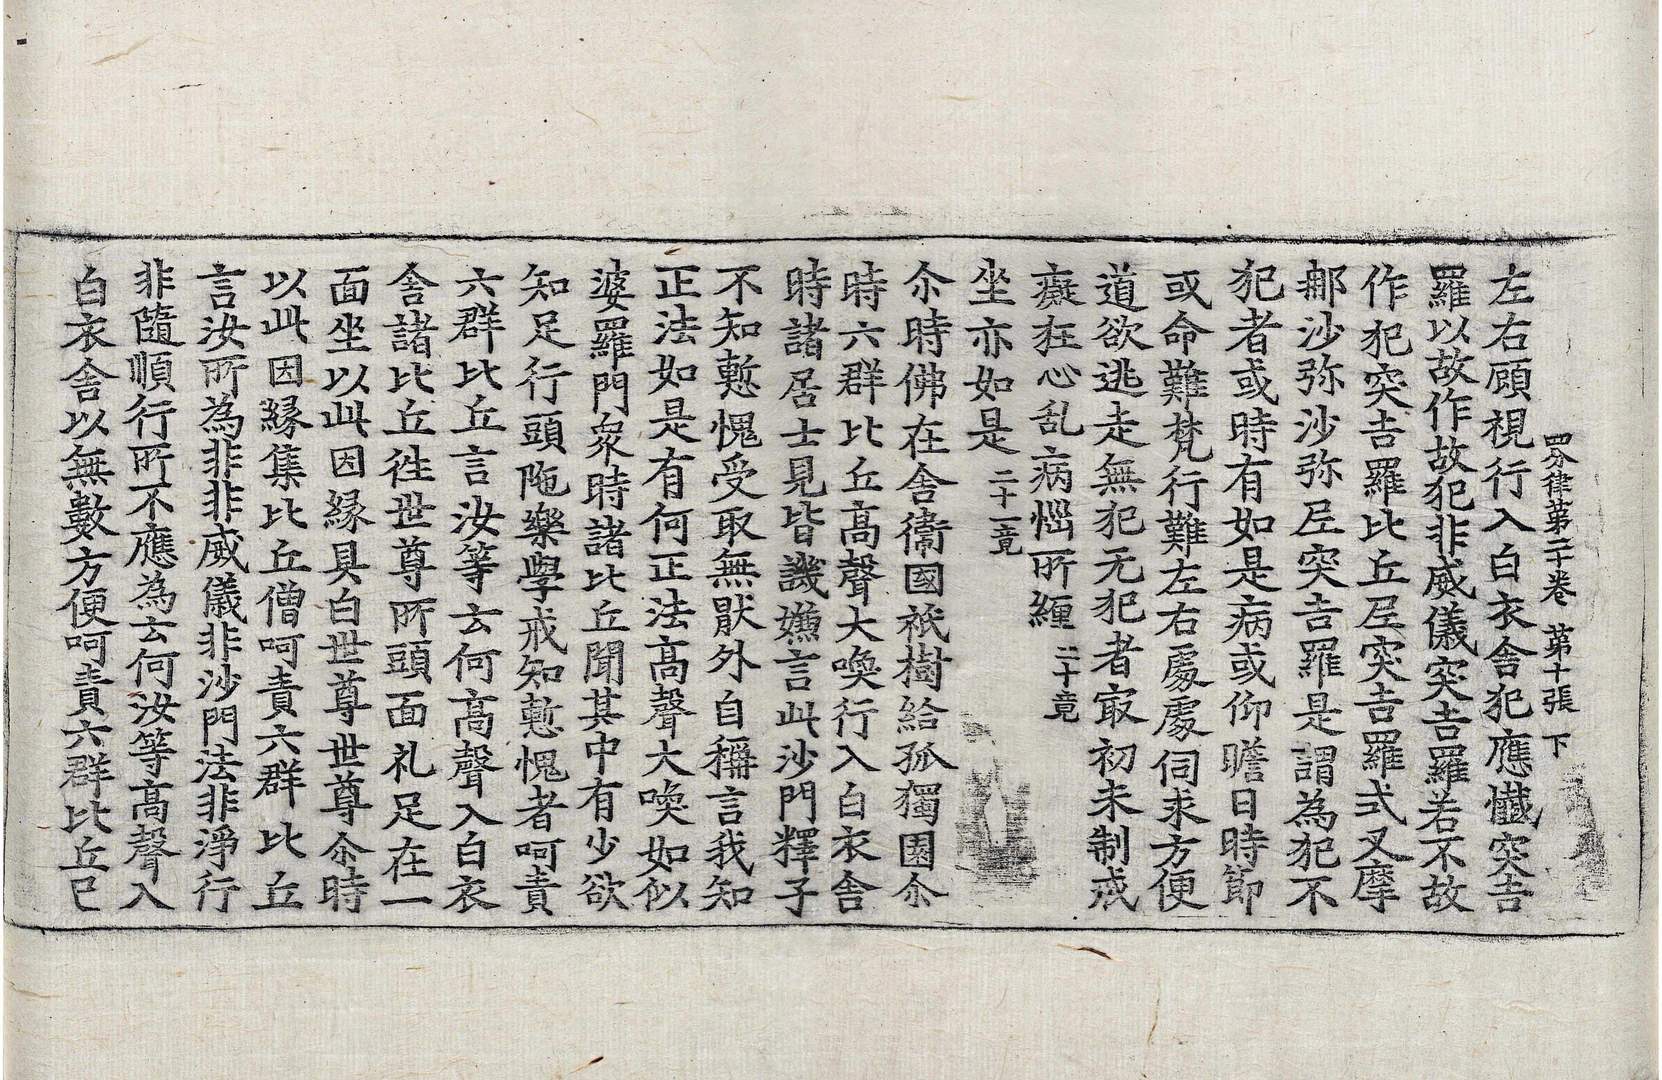 四分律第二十卷 第十張 下
左右顧視行入白衣舍犯應懺突吉
羅以故作故犯非威儀突吉羅若不故
作犯突吉羅比丘尼突吉羅式叉摩
那沙弥沙弥尼突吉羅是謂為犯不
犯者或時有如是病或仰瞻日時節
或命難梵行難左右處處伺求方便
道欲逃走無犯无犯者㝡初未制戒
癡狂心乱病惱所纏 二十竟
坐亦如是 二十一竟
尒時佛在舍衛國祇樹給孤獨園尒
時六群比丘高聲大喚行入白衣舍
時諸居士見皆譏嫌言此沙門釋子
不知慙愧受取無猒外自稱言我知
正法如是有何正法高聲大喚如似
婆羅門衆時諸比丘聞其中有少欲
知足行頭陁樂學戒知慙愧者呵責
六群比丘言汝等云何高聲入白衣
舍諸比丘徃世尊所頭面礼足在一
面坐以此因緣具白世尊世尊尒時
以此因緣集比丘僧呵責六群比丘
言汝所為非非威儀非沙門法非淨行
非隨順行所不應為云何汝等高聲入
白衣舍以無數方便呵責六群比丘已